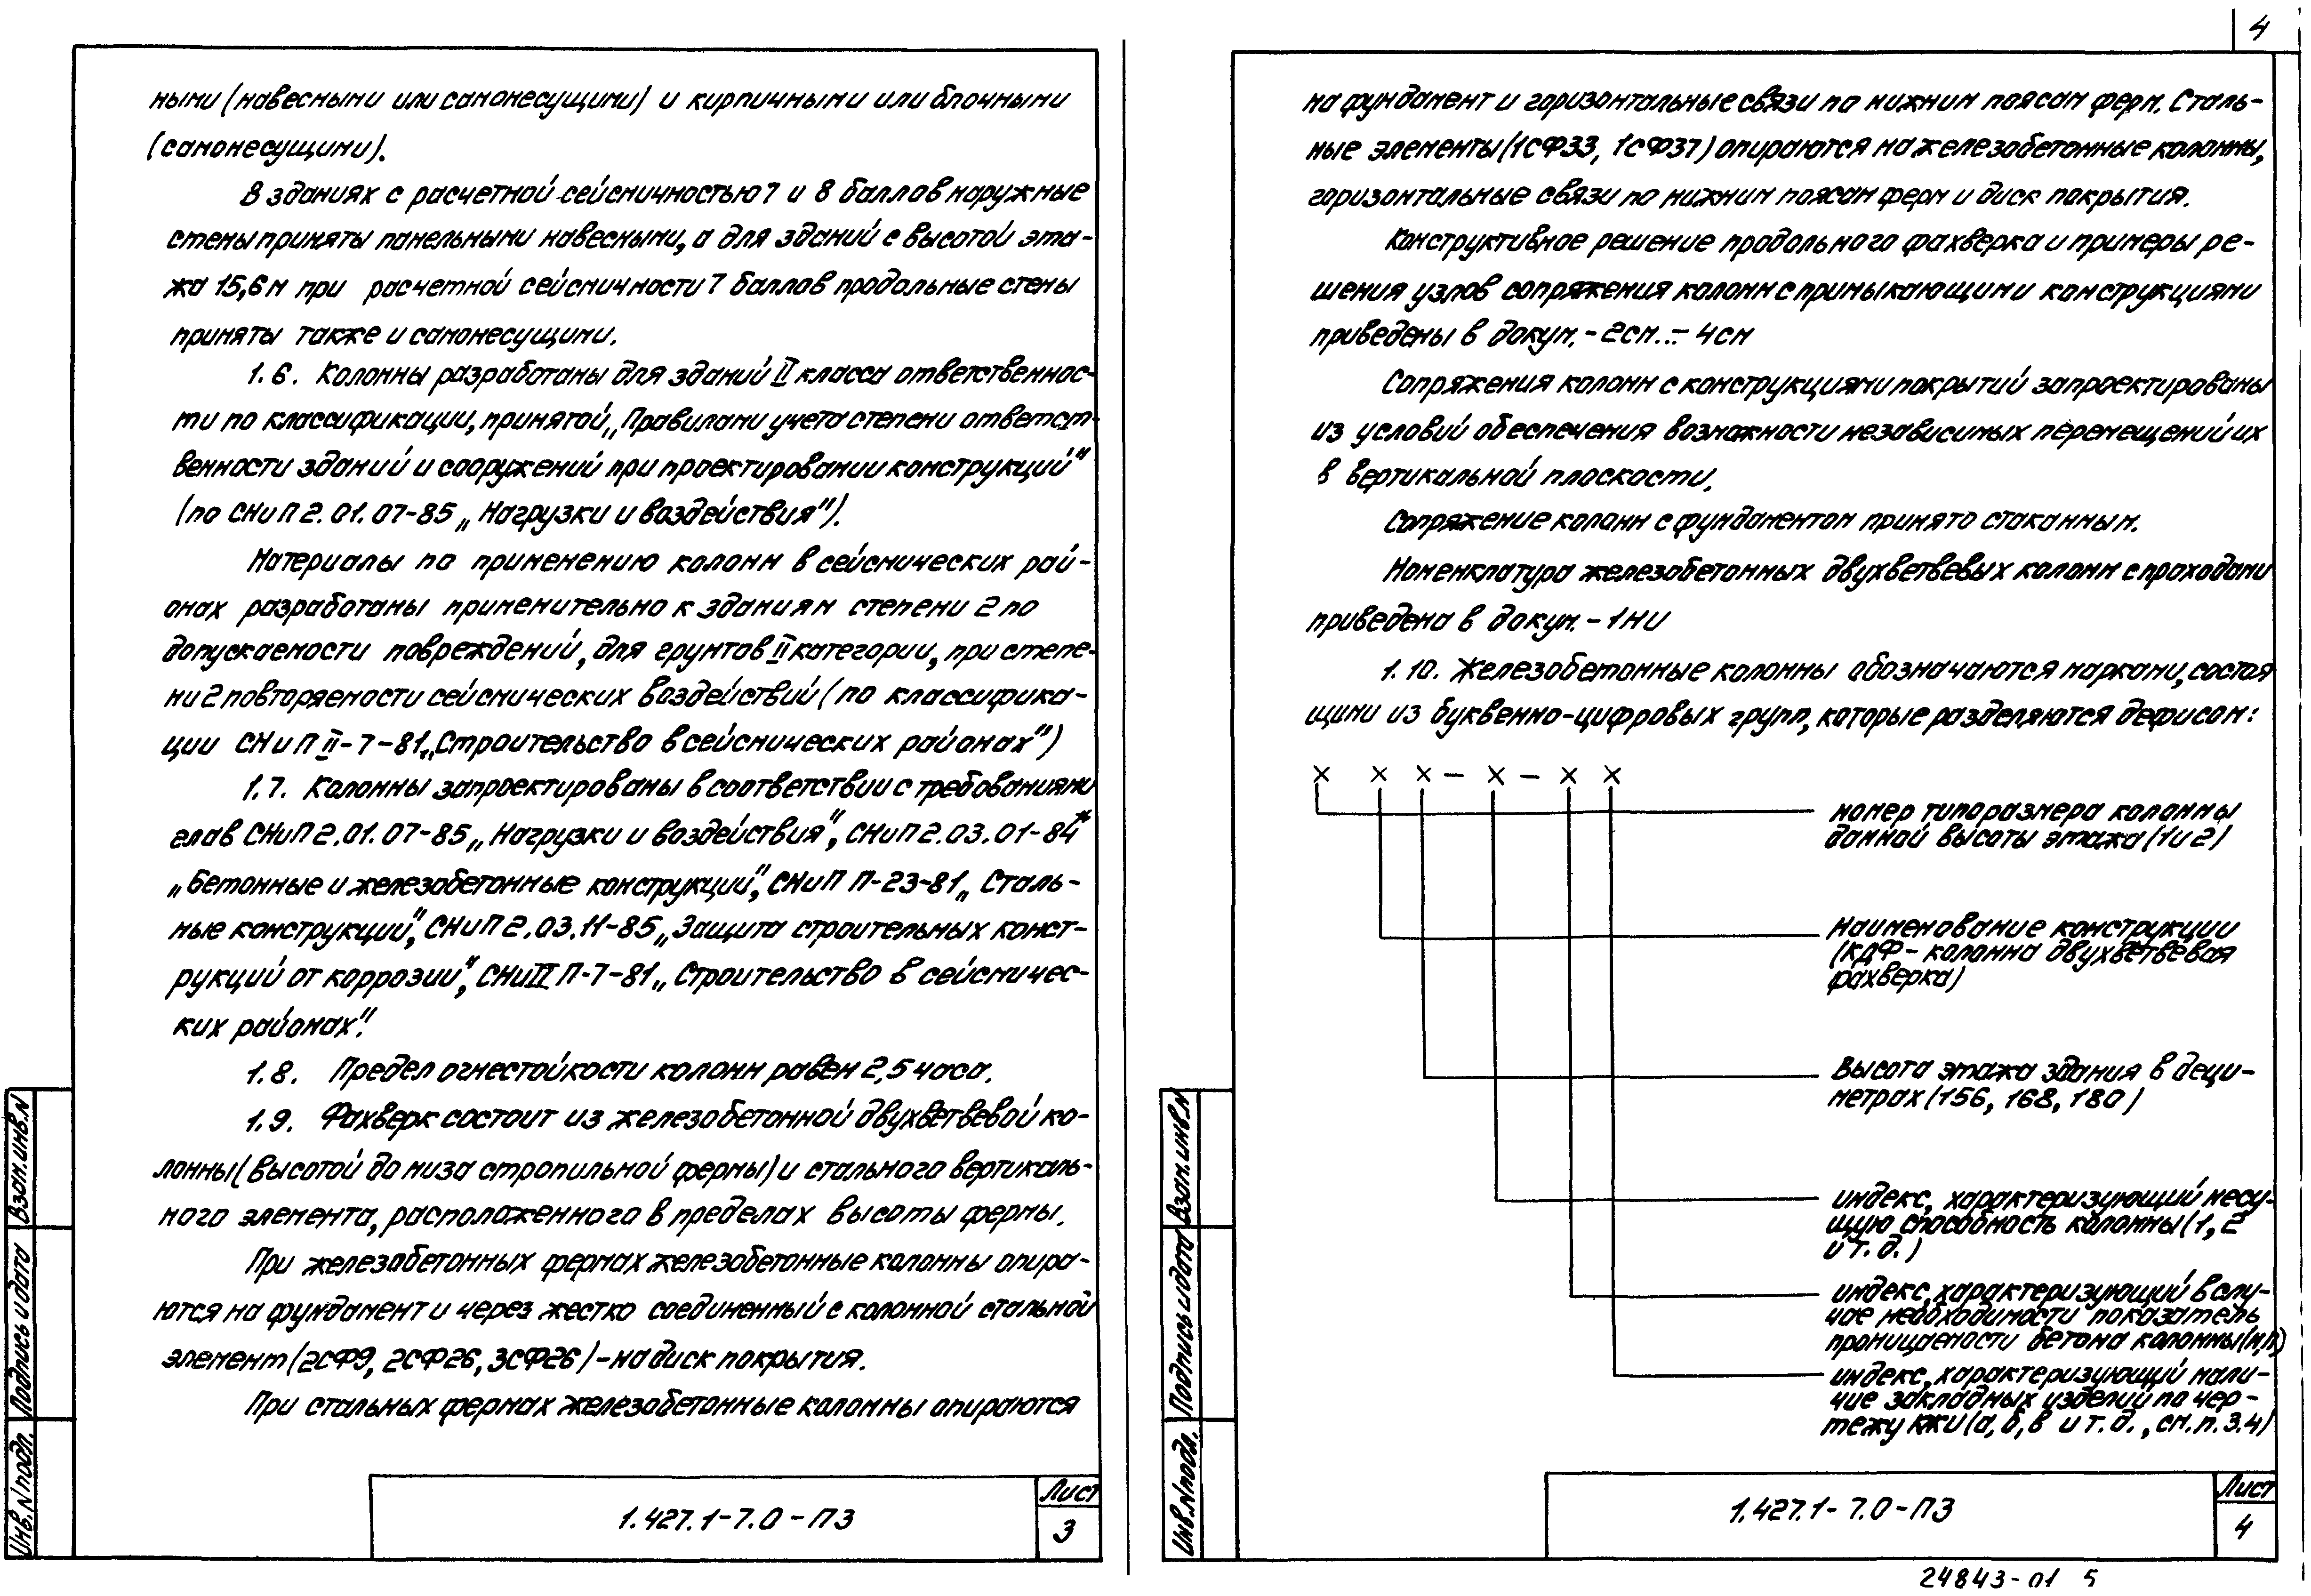 ными (навесными или самонесущими) и кирпичными или блочными
(самонесущими).
В зданиях с расчетной сейсмичностью 7 и 8 баллов наружные
стены приняты панельными навесными, а для зданий с высотой эта-
жа 15,6 м при расчетной сейсмичности 7 баллов продольные стены
приняты также и самонесущими.
1.6. Колонны разработаны для зданий II класса ответственнос-
ти по классификации, принятой „Правилами учета степени ответст-
венности зданий и сооружений при проектировании конструкций"
(по СНиП 2.01.07-85 „Нагрузки и воздействия").
Материалы по применению колонн в сейсмических рай-
онах разработаны применительно к зданиям степени 2 по
допускаемости повреждений, для грунтов II категории, при степе-
ни 2 повторяемости сейсмических воздействий (по классифика-
ции СНиП II-7-81 „Строительство в сейсмических районах")
1.7. Колонны запроектированы в соответствии с требованиями
глав СНиП 2.01.07-85 „Нагрузки и воздействия", СНиП 2.03.01-84*
„Бетонные и железобетонные конструкций", СНиП П-23-81 „Сталь-
ные конструкций", СНиП 2.03.11-85 „Защита строительных конст-
рукций от коррозии", СНиII П-7-81 „Строительство в сейсмичес-
ких районах".
1.8. Предел огнестойкости колонн равен 2,5 часа.
1.9. Фахверк состоит из железобетонной двухветвевой ко-
лонны (высотой до низа стропильной фермы) и стального вертикаль-
ного элемента, расположенного в пределах высоты фермы.
При железобетонных фермах железобетонные колонны опира-
ются на фундамент и через жестко соединенный с колонной стальной
элемент (2СФ9, 2СФ26, 3СФ26) - на диск покрытия.
При стальных фермах железобетонные колонны опираются
Взам.инв.N
Подпись и дата
Инв.N подл.
1.427.1-7.0-ПЗ
Лист
3
4
на фундамент и горизонтальные связи по нижним поясам ферм. Сталь-
ные элементы (1СФ33, 1СФ37) опираются на железобетонные колонны,
горизонтальные связи по нижним поясам ферм и диск покрытия.
Конструктивное решение продольного фахверка и примеры ре-
шения узлов сопряжения колонн с примыкающими конструкциями
приведены в докум. - 2см...- 4см
Сопряжения колонн с конструкциями покрытий запроектированы
из условий обеспечения возможности независимых перемещений их
в вертикальной плоскости.
Сопряжение колонн с фундаментом принято стаканным.
Номенклатура железобетонных двухветвевых колонн с проходами
приведена в докум. - 1НИ
1.10. Железобетонные колонны обозначаются марками, состоя
щими из буквенно-цифровых групп, которые разделяются дефисом:
х х х - х - х х
номер типоразмера колонны
данной высоты этажа (1 и 2)
Наименование конструкции
(КДФ - колонна двухветвевая
фахверка)
Высота этажа здания в деци-
метрах (156, 168, 180)
индекс, характеризующий несу-
щую способность колонны (1, 2
и т. д.)
индекс, характеризующий в слу-
чае необходимости показатель
проницаемости бетона колонны (н, п)
индекс, характеризующий нали-
чие закладных изделий по чер-
тежу КЖИ (а, б, в и т. д., см. п. 3.4)
Взам.инв.N
Подпись и дата
Инв.N подл.
1.427.1-7.0-ПЗ
Лист
4
24843-01 5